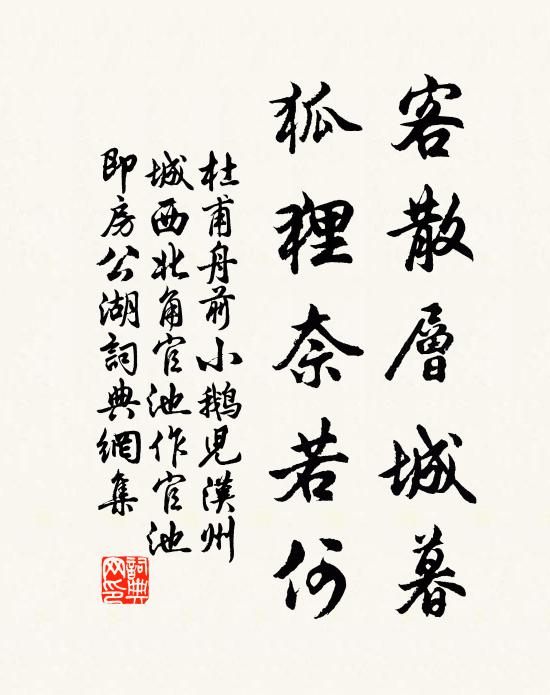 客散層城暮
狐狸奈若何
杜甫舟前小鵝兒漢州
城西北角官池作官池
即房公湖詞典網集
詞典网印